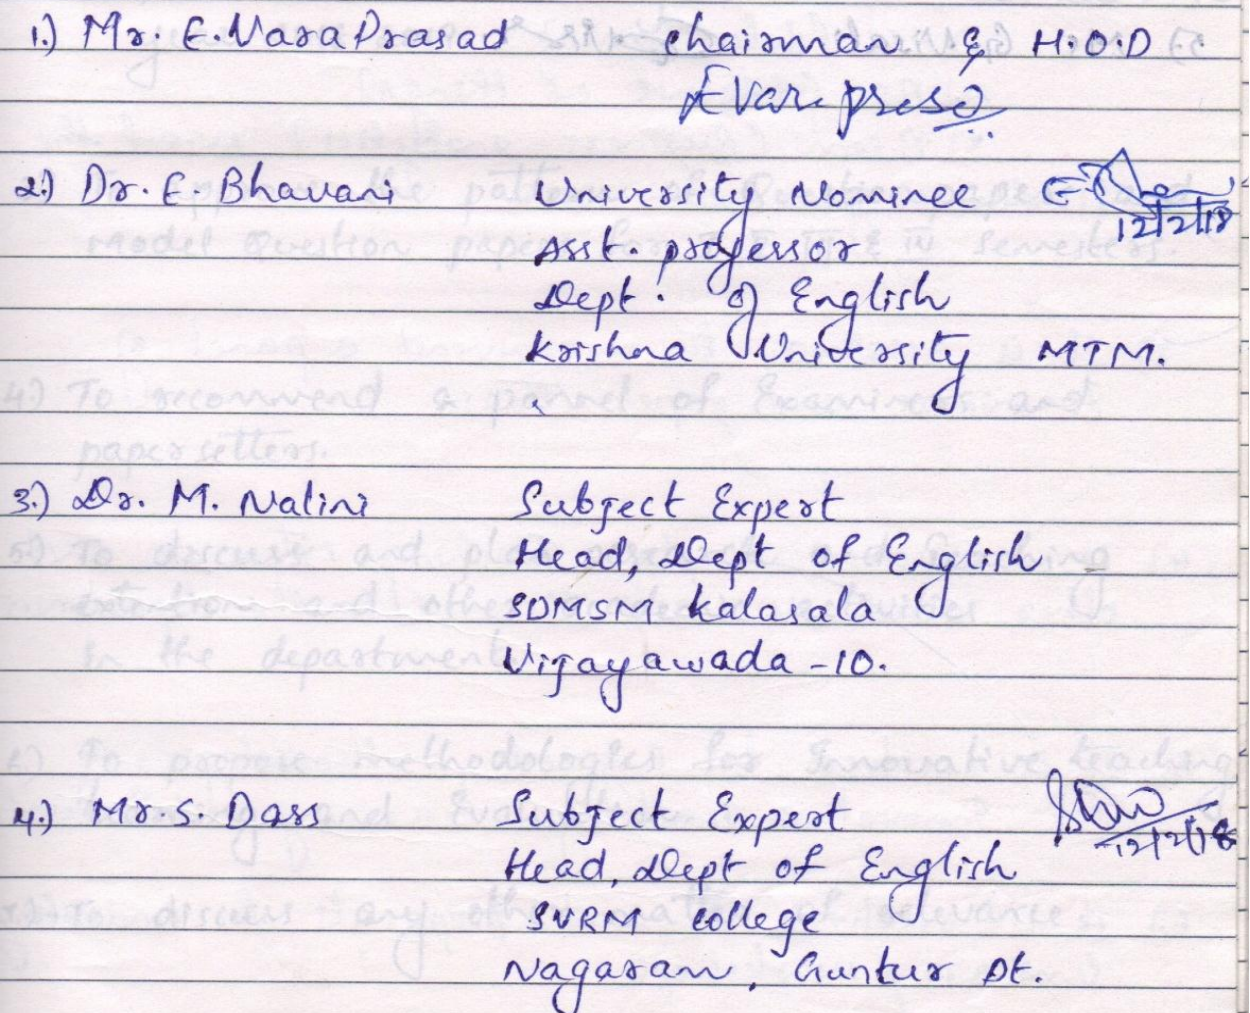 1.) Mr. E. Vara Prasad chairman & H.O.D
E Vara prasad
2.) Dr. E. Bhavani University Nominee
12/2/18
Asst. professor
Dept. of English
Krishna University MTM.
3.) Dr. M. Nalini Subject Expert
Head, Dept of English
SDMSM Kalasala
Vijayawada - 10.
4.) Mr. S. Dass Subject Expert
12/2/18
Head, Dept of English
SVRM college
Nagaram, Guntur Dt.